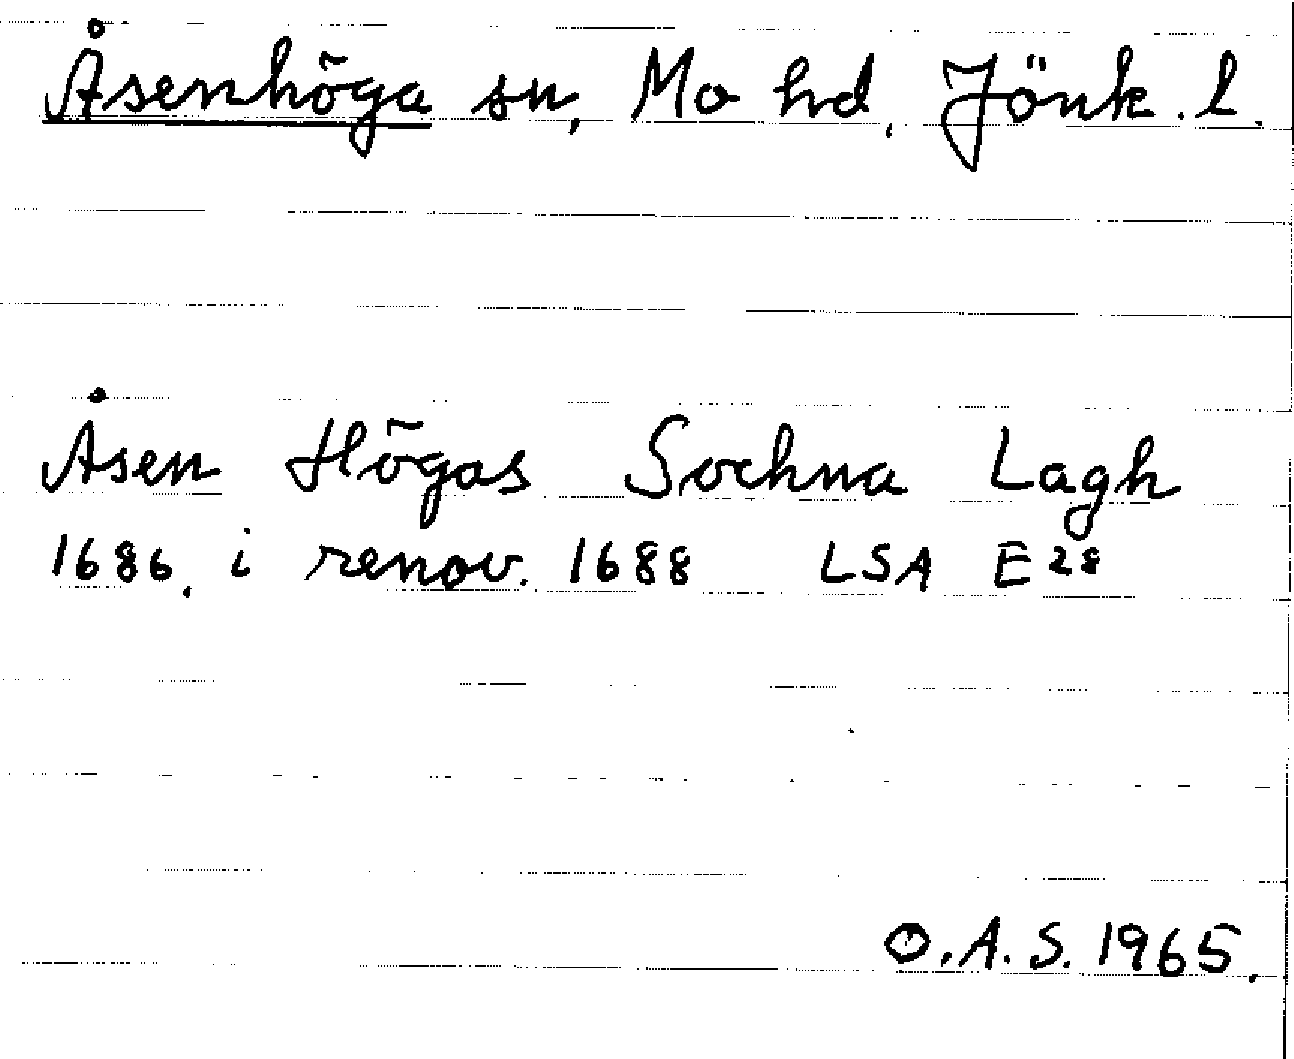 Åsenhöga sn, Mo hd, Jönk. l.
Åsen Högas Sochna Lagh
1686, i renov. 1688 LSA E28
O.A.S. 1965.